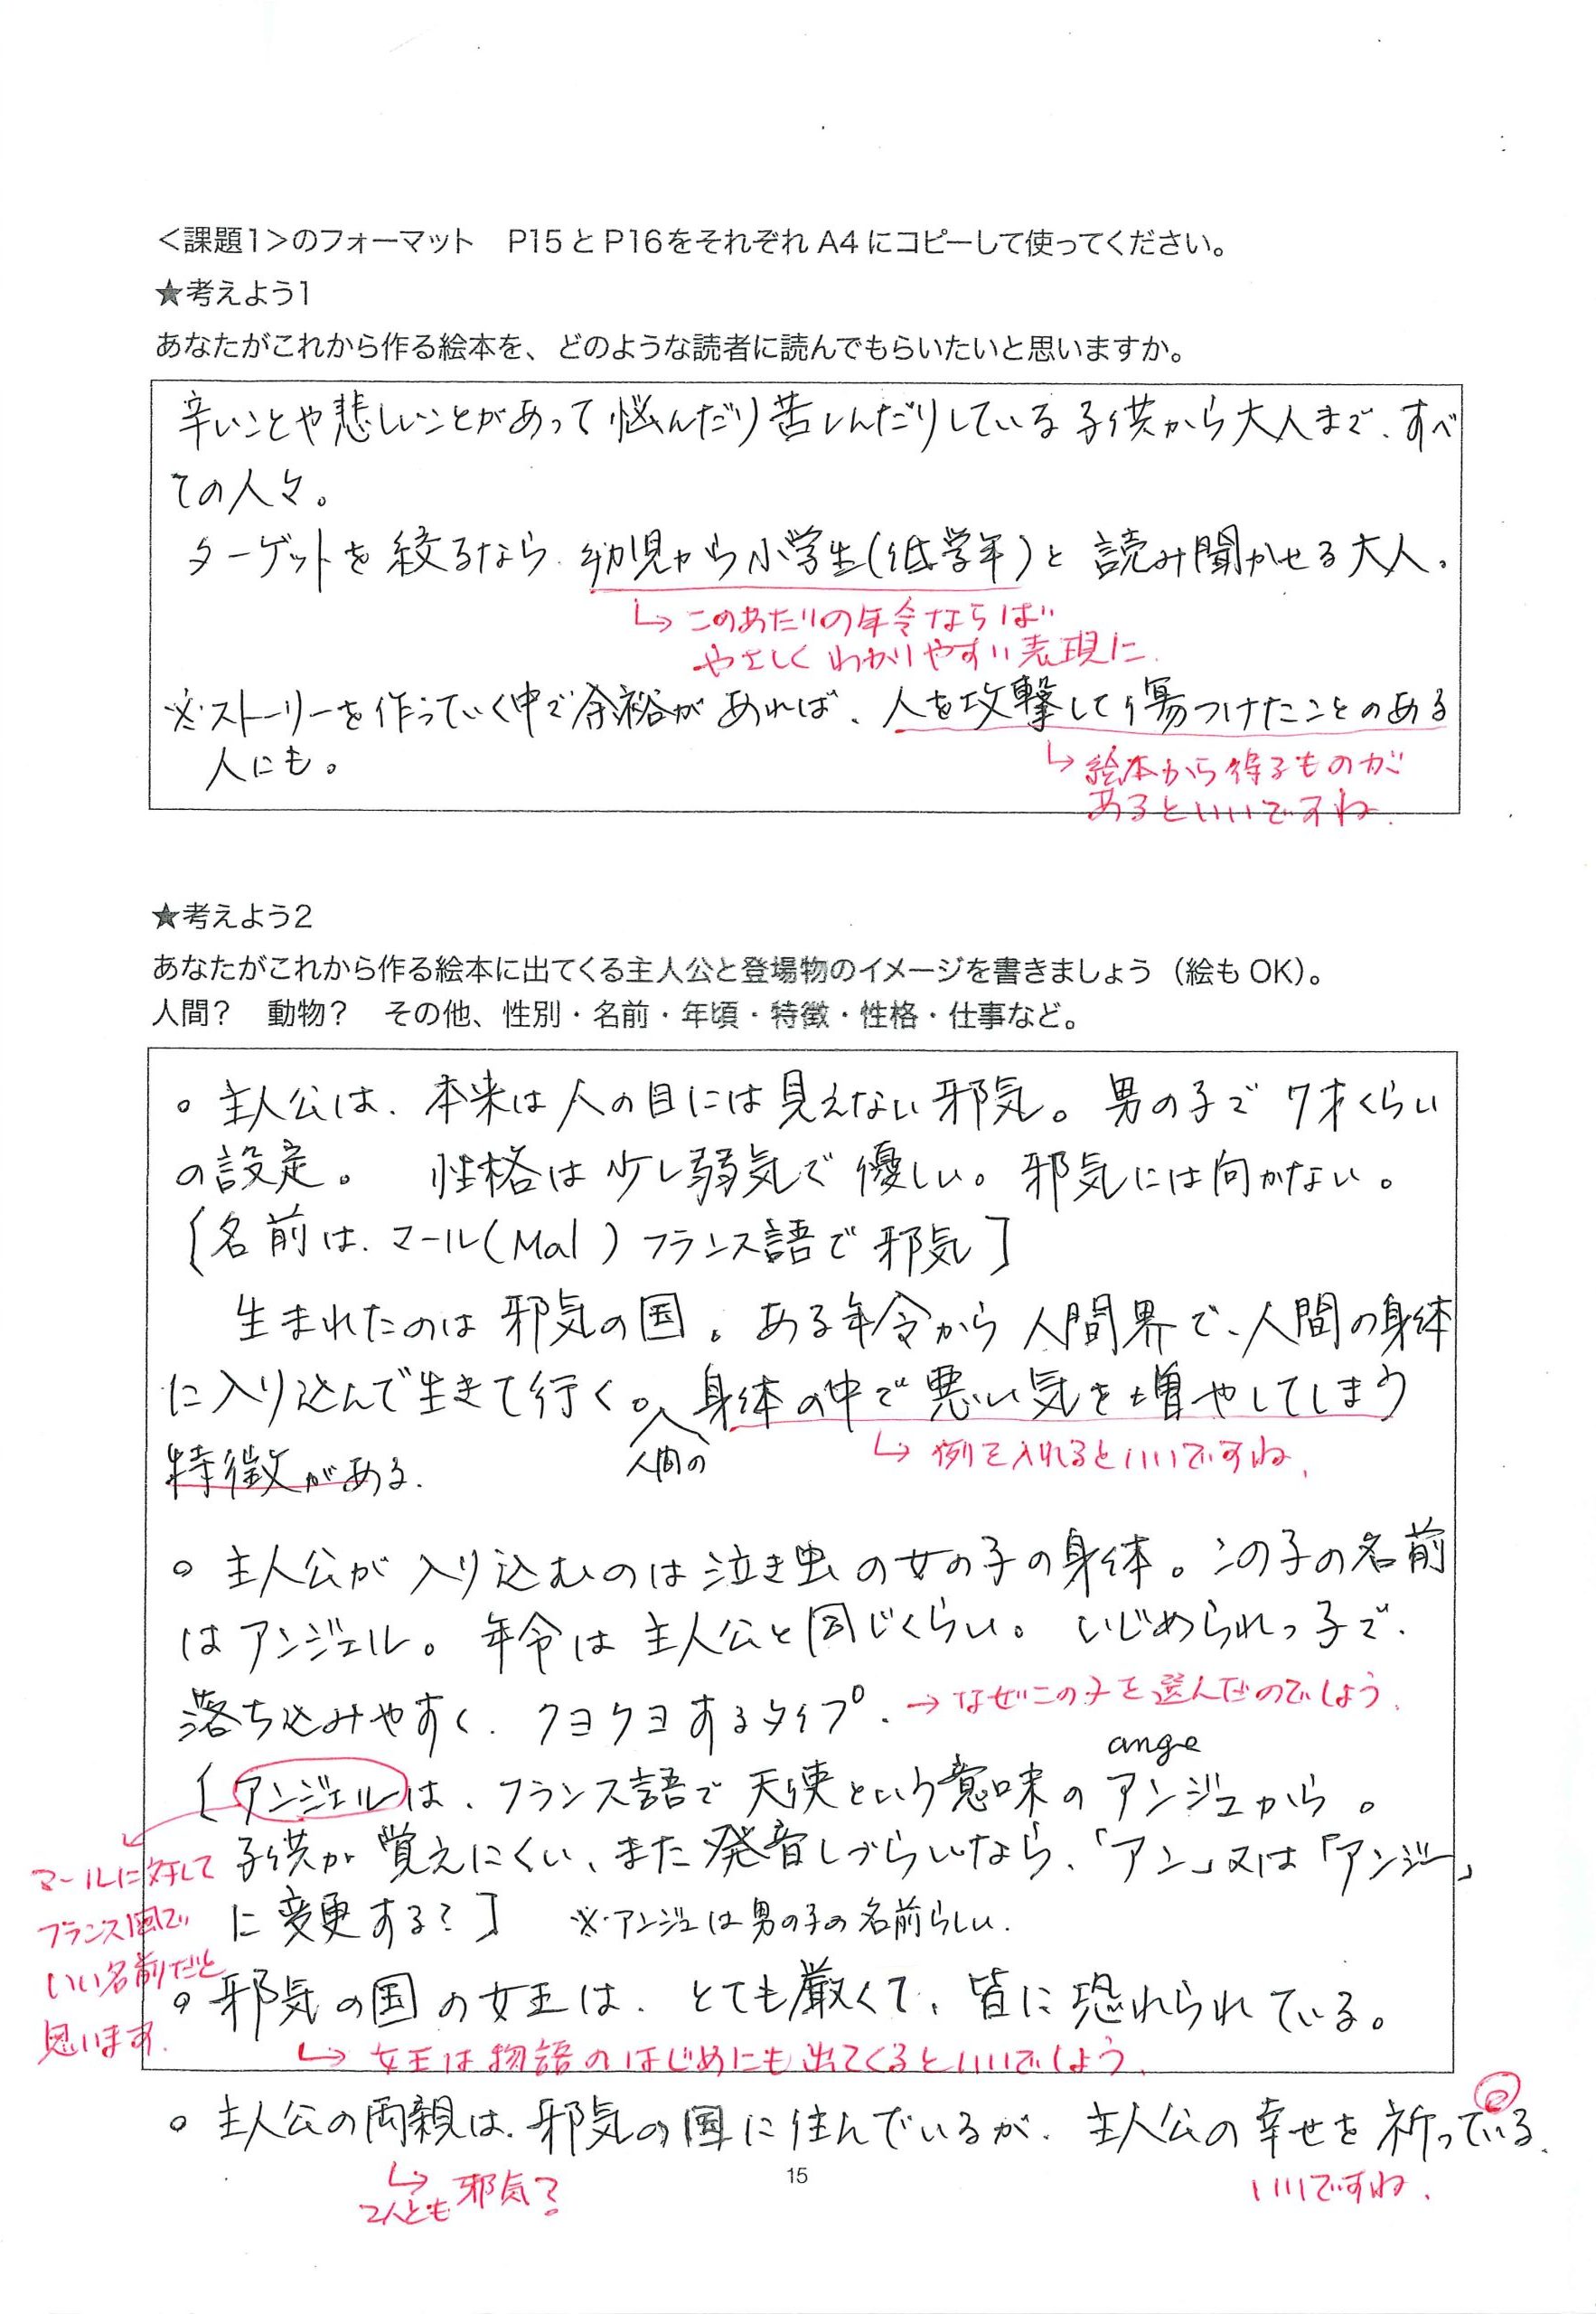 <課題1>のフォーマット　P15とP16をそれぞれA4にコピーして使ってください。
★考えよう1
あなたがこれから作る絵本を、どのような読者に読んでもらいたいと思いますか。
辛いことや悲しいことがあって悩んだり苦しんだりしている子供から大人まで、すべ
ての人々。
ターゲットを絞るなら、幼児から小学生(低学年)と読み聞かせる大人。
↳このあたりの年令ならば
やさしくわかりやすい表現に。
※ストーリーを作っていく中で余裕があれば、人を攻撃して傷つけたことのある
人にも。
↳絵本から得るものが
あるといいですね。
★考えよう2
あなたがこれから作る絵本に出てくる主人公と登場物のイメージを書きましょう（絵もOK）。
人間？　動物？　その他、性別・名前・年頃・特徴・性格・仕事など。
○主人公は、本来は人の目には見えない邪気。男の子で7才くらい
の設定。　性格は少し弱気で優しい。邪気には向かない。
[名前は、マール(Mal)フランス語で邪気]
生まれたのは邪気の国。ある年令から人間界で、人間の身体
に入り込んで生きて行く。身体の中で悪い気を増やしてしまう
人間の
↳例を入れるといいですね。
特徴がある。
○主人公が入り込むのは泣き虫の女の子の身体。この子の名前
はアンジェル。年令は主人公と同じくらい。いじめられっ子で、
落ち込みやすく、クヨクヨするタイプ。
→なぜこの子を選んだのでしょう。
ange
[アンジェルは、フランス語で天使という意味のアンジュから。
子供が覚えにくい、また発音しづらいなら、「アン」又は「アンジー」
に変更する？]　※アンジュは男の子の名前らしい。
マールに対して
フランス風で
いい名前だと
思います。
○邪気の国の女王は、とても厳くて、皆に恐れられている。
↳女王は物語のはじめにも出てくるといいでしょう。
○主人公の両親は、邪気の国に住んでいるが、主人公の幸せを祈っている。
↳2人とも邪気？
いいですね。
15